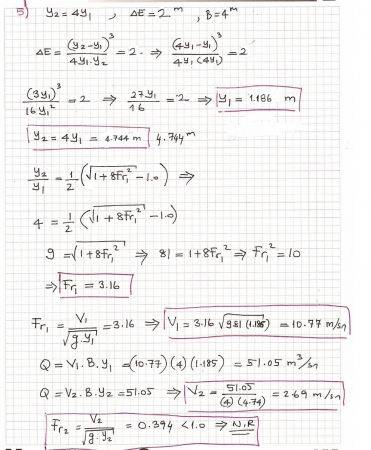 5) y₂ = 4y₁ , ΔE = 2 m , B = 4 m
ΔE = (y₂-y₁)³ / 4y₁.y₂ = 2. ⇒ (4y₁-y₁)³ / 4y₁(4y₁) = 2
(3y₁)³ / 16y₁² = 2 ⇒ 27y₁ / 16 = 2 ⇒ y₁ = 1.186 m
y₂ = 4y₁ = 4.744 m 4.744 m
y₂/y₁ = 1/2 (√(1+8Fr₁²) - 1.0) ⇒
4 = 1/2 (√(1+8Fr₁²) - 1.0)
9 = √(1+8Fr₁²) ⇒ 81 = 1+8Fr₁² ⇒ Fr₁² = 10
⇒ Fr₁ = 3.16
Fr₁ = V₁ / √(g.y₁) = 3.16 ⇒ V₁ = 3.16 √(9.81 (1.185)) = 10.77 m/sn
Q = V₁.B.y₁ = (10.77)(4)(1.185) = 51.05 m³/sn
Q = V₂.B.y₂ = 51.05 ⇒ V₂ = 51.05 / (4)(4.74) = 2.69 m/sn
Fr₂ = V₂ / √(g.y₂) = 0.394 < 1.0 ⇒ N.R